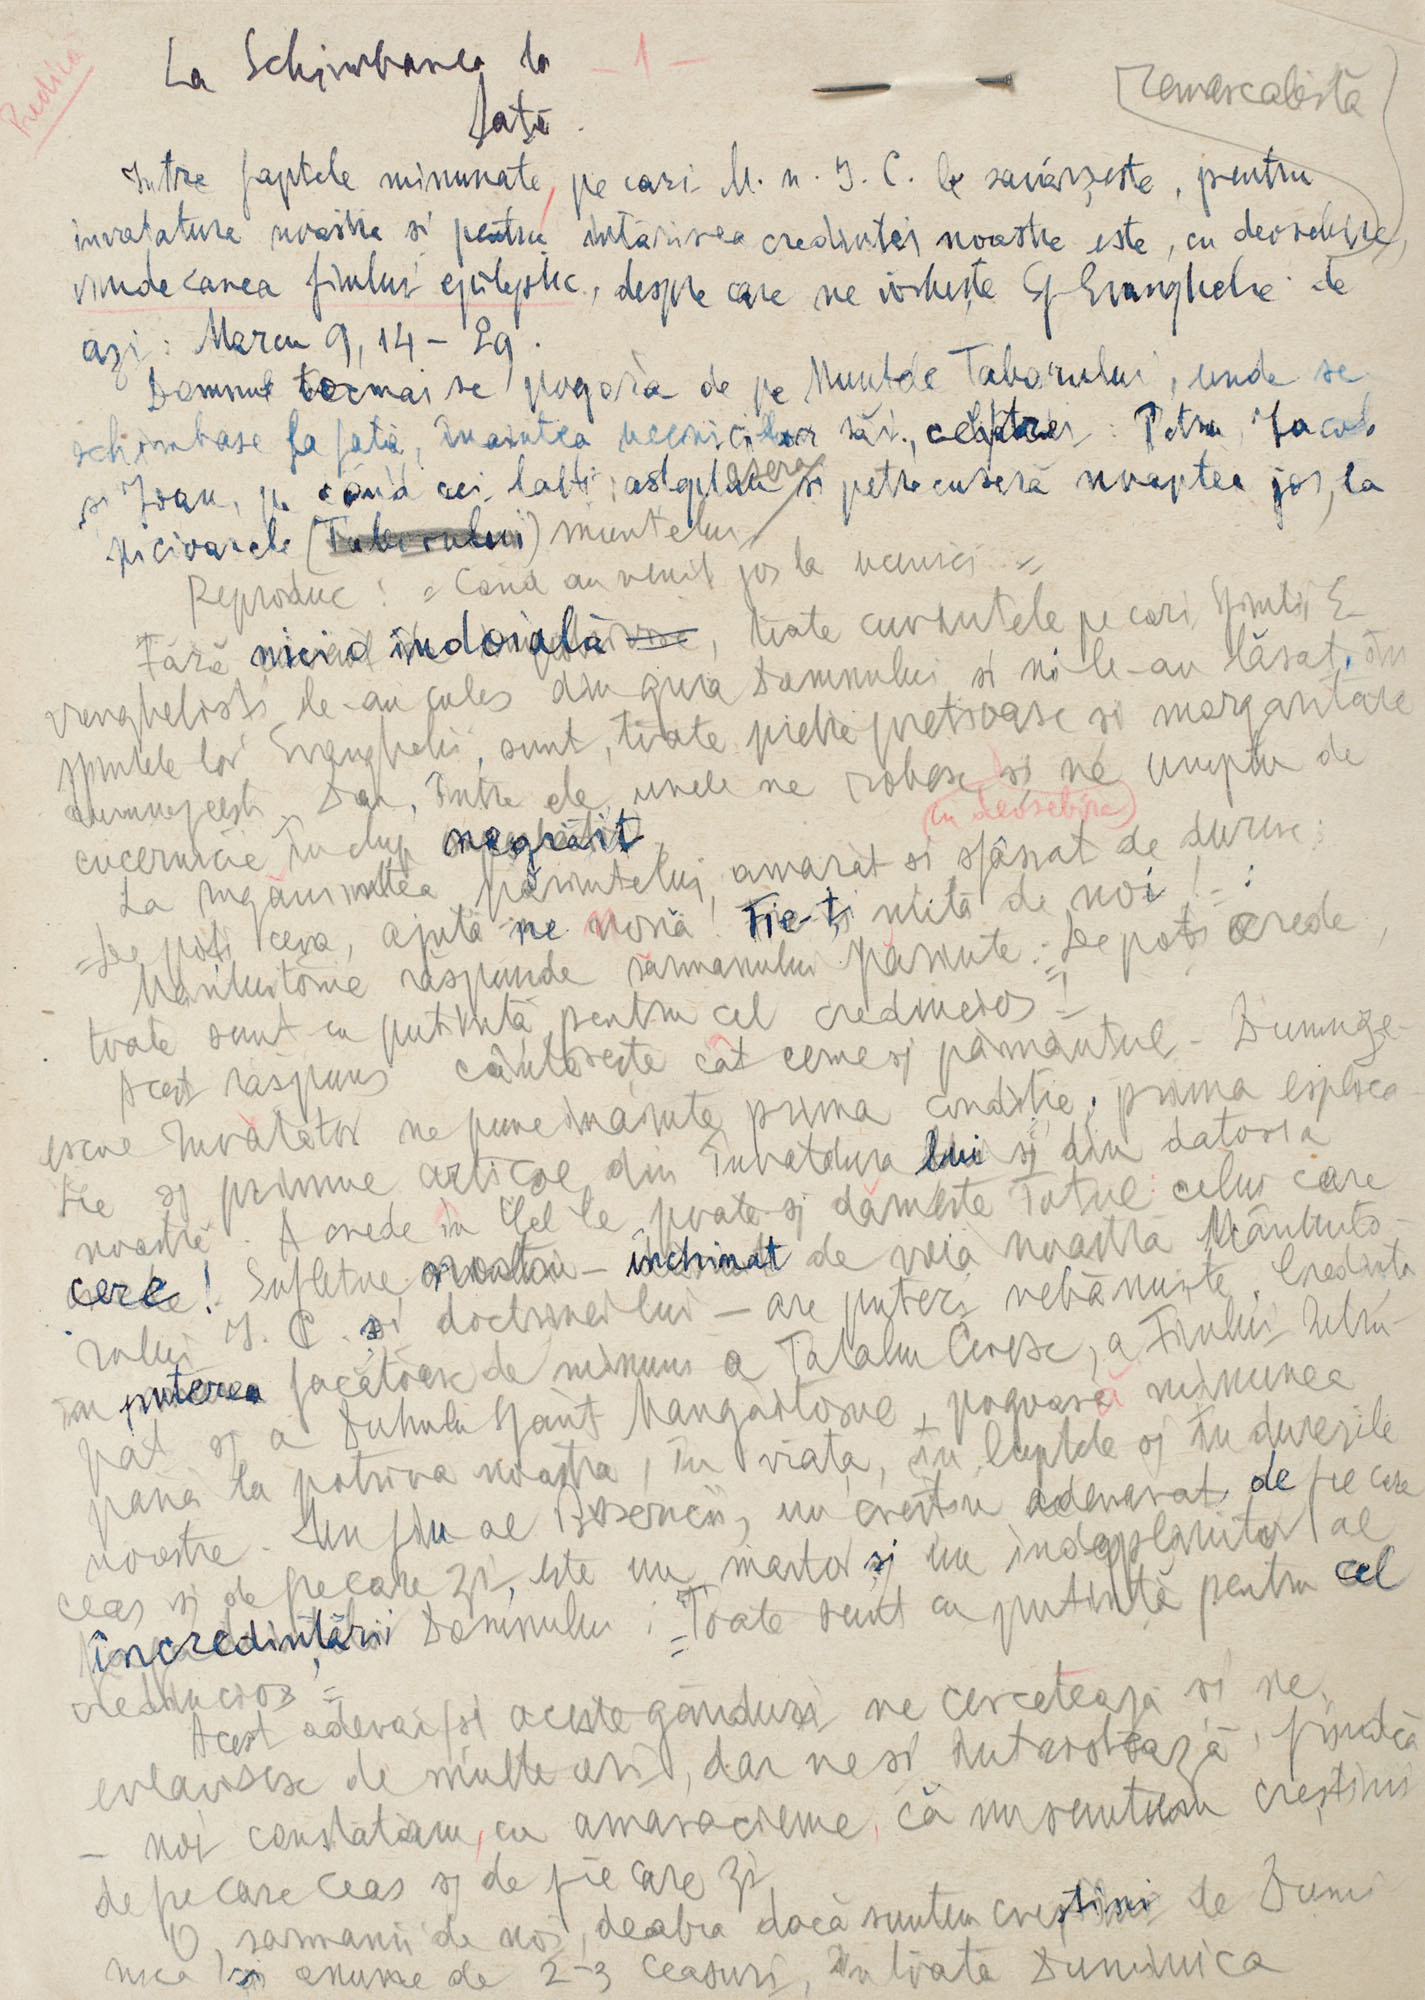 Predică
La Schimbarea la - 1 -
față.
remarcabilă
Intre faptele minunate, pe cari M. n. I. C. le savârșeste, pentru
invatatura noastra si pentru intărirea credintei noastre este, cu deosebire,
vindecarea fiului epileptic, despre care ne vorbește Sf Evanghelie de
azi: Marcu 9, 14 - 29.
Domnul tocmai se pogora de pe Muntele Taborului, unde se
schimbase la fată, înaintea ucenicilor săi, celor trei: Petru, Iacob
si Ioan, pe când cei lalti asteptaseră si petrecuseră noaptea jos, la
picioarele (Taborului) muntelui
Reproduc: "Când au venit jos la ucenici"
Fără nicio îndoială, toate cuvintele pe cari Sfintii E
vanghelisti le-au cules din gura Domnului si ni le-au lăsat, în
sfintele lor Evanghelii, sunt, toate pietre pretioase si margaritare
dumnezeesti. Dar, între ele, unele ne robesc si ne umplu de
cucernicie în chip negrăit. cu deosebire
La rugămintea părintelui, amarat si sfâsiat de durere:
"De poti ceva, ajută-ne nouă! Fie-ți milă de noi!":
Mântuitorul răspunde sarmanului părinte: "De poti crede,
toate sunt cu putintă pentru cel credincios!"
Acest răspuns cântăreste cât cerul si pământul. Dumneze-
escul Invătător ne pune inainte prima conditie, prima explica-
tie si primul articol din învatătura lui si din datoria
noastră. A crede în Cel ce poate si dăruieste totul celui care
cere! Sufletul nostru - inchinat de voia noastră Mântuito-
rului I. C. si doctrinei lui - are puteri nebănuite. Credinta
în puterea făcătoare de minuni a Tatalui Ceresc, a Fiului Intru-
pat si a Duhului Sfânt Mangaitorul, pogoară minunea
pana la potriva noastra, în viata, în luptele si în durerile
noastre. Un fiu al Bisericii, un crestin adevarat, de fie care
ceas si de fiecare zi, este un martor si un indeplinitor al
încredintării Domnului: "Toate sunt cu putintă pentru cel
credincios"
Acest adevar si aceste gânduri ne cercetează si ne
evlavisesc de multe ori, dar ne si întristează, fiindcă
- noi constatam, cu amaraciune, că nu suntem creștini
de fie care ceas si de fie care zi.
O, sarmanii de noi, deabia dacă suntem creștini de Dumi
nica si anume de 2-3 ceasuri, în toată Duminica